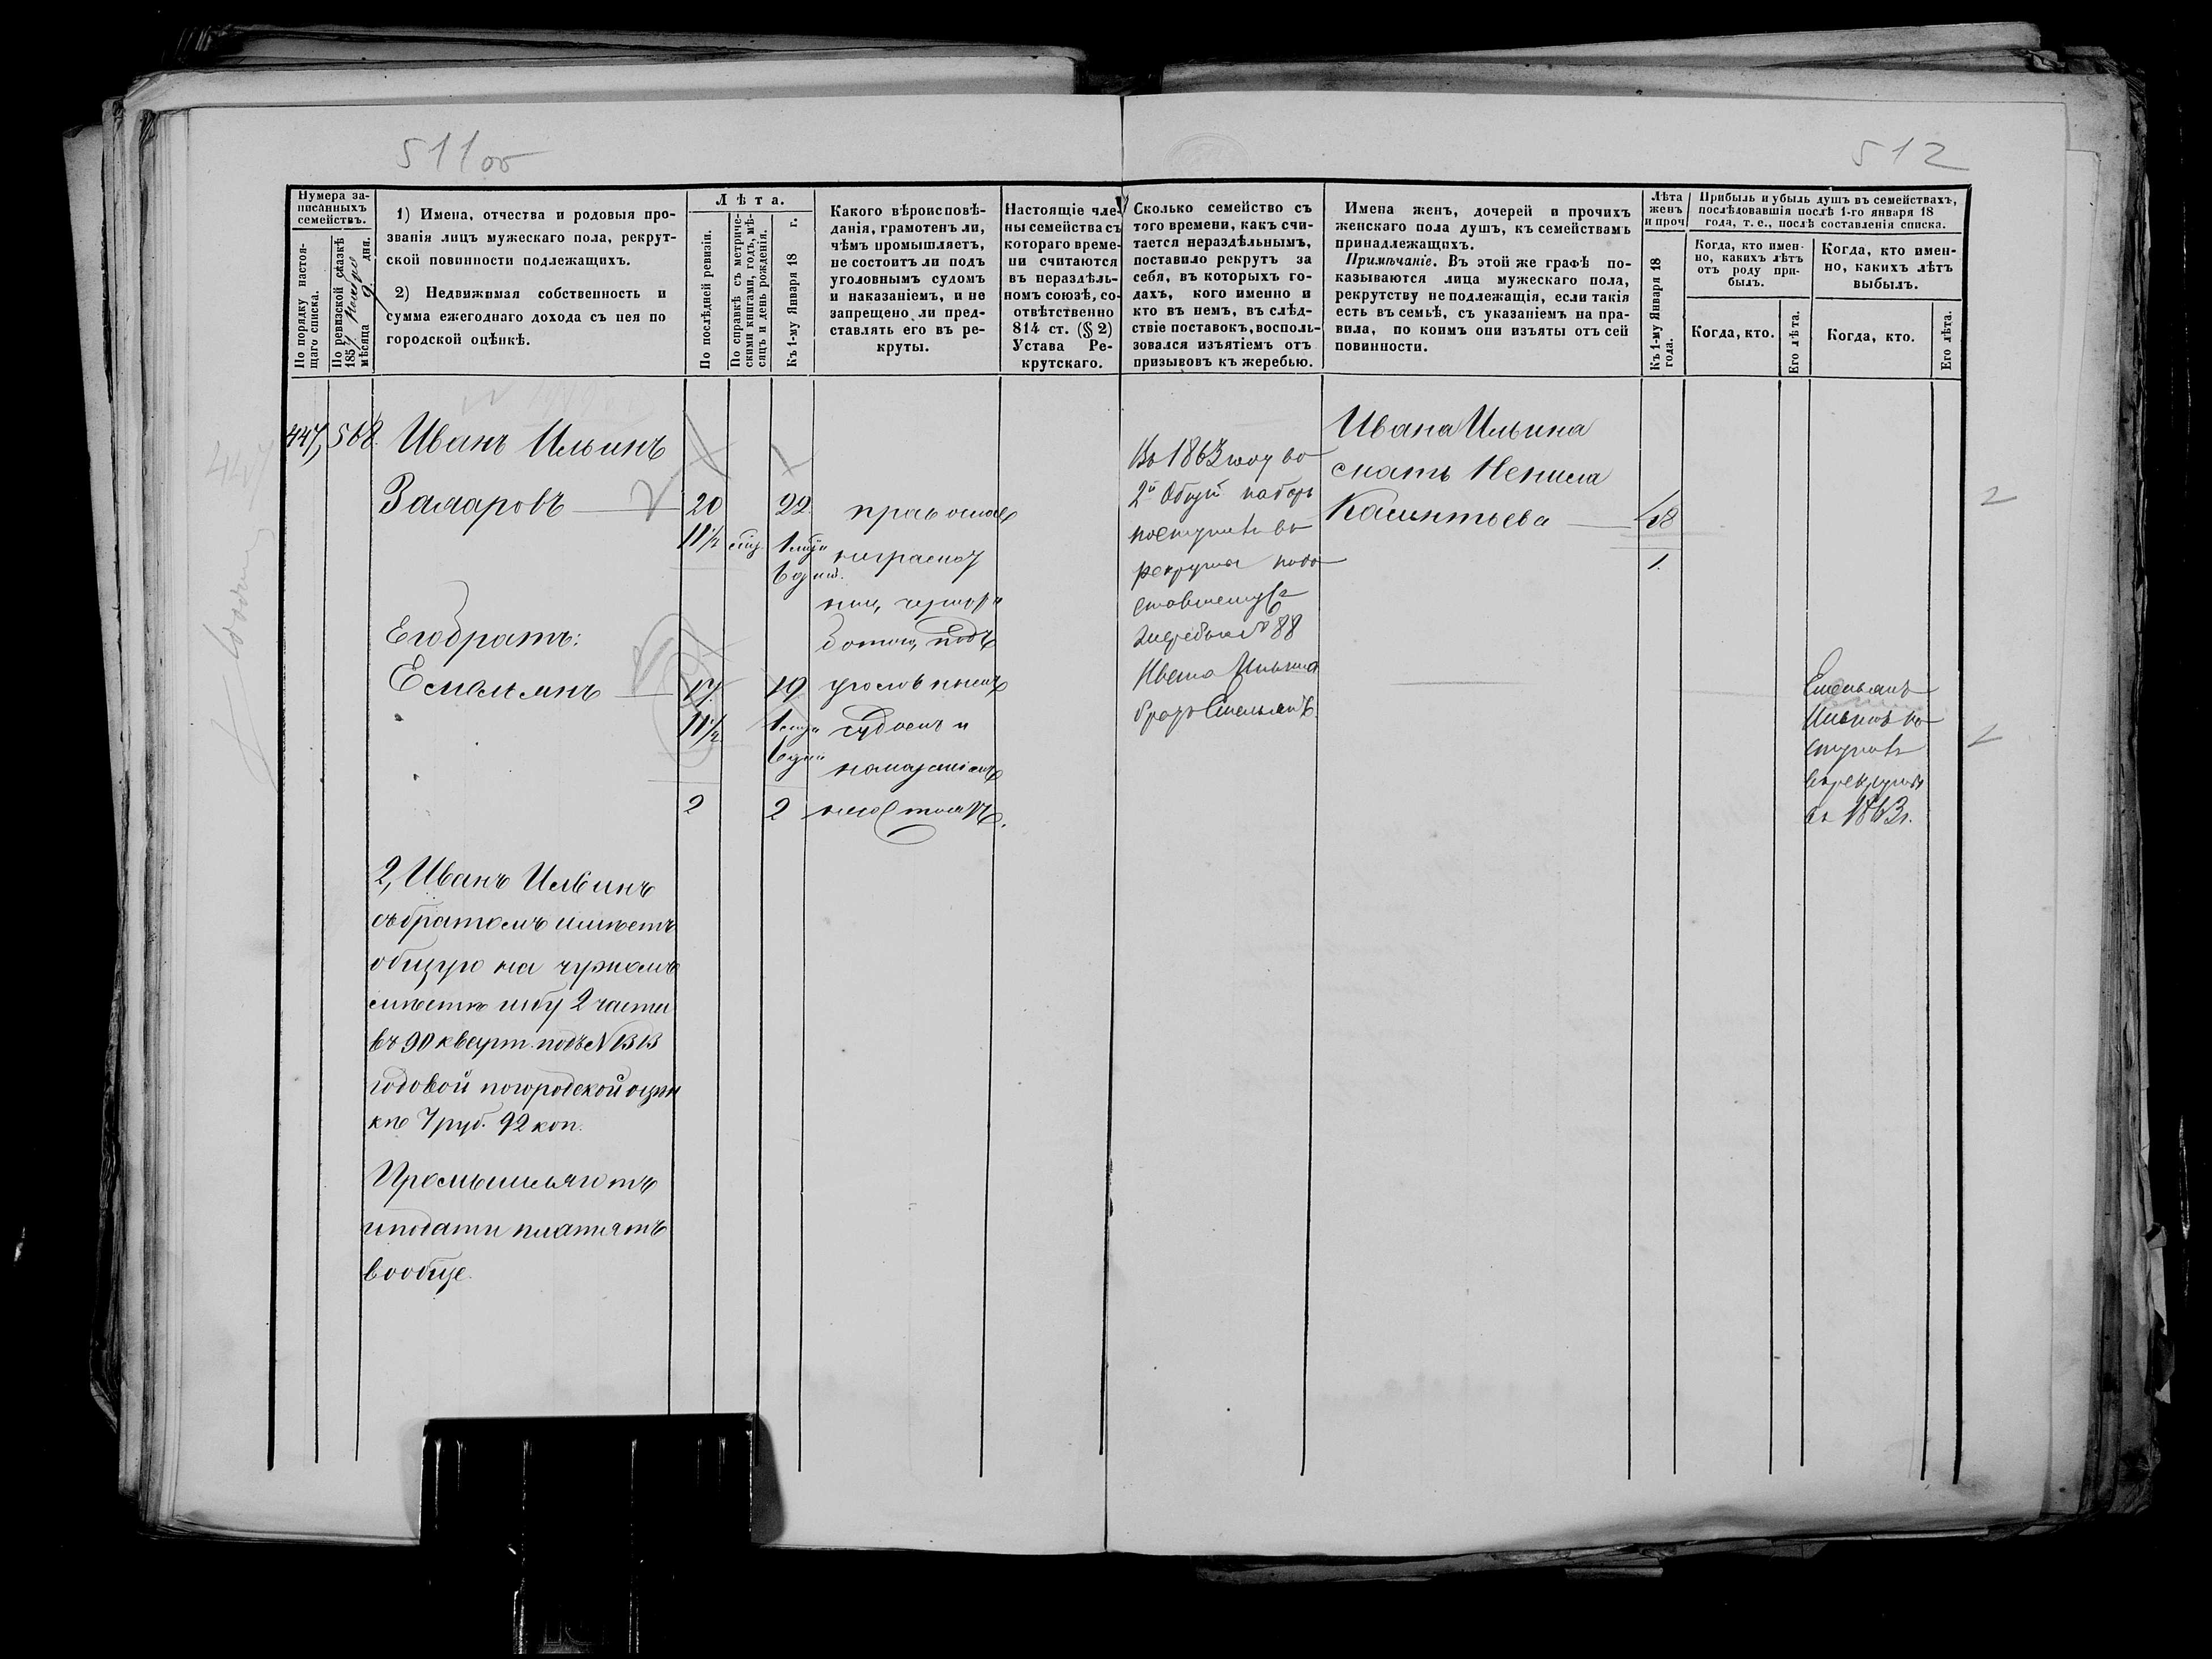 511об
512
Нумера за-
писанныхъ
семействъ.
По порядку настоя-
щаго списка.
По ревизской сказкѣ
1857
мѣсяца 9 дня.
1) Имена, отчества и родовыя про-
званія лицъ мужескаго пола, рекрут-
ской повинности подлежащихъ.
2) Недвижимая собственность и
сумма ежегоднаго дохода съ нея по
городской оцѣнкѣ.
Лѣта.
По послѣдней ревизіи.
По справкѣ съ метриче-
скими книгами, годъ, мѣ-
сяцъ и день рожденія.
Къ 1-му Января 18 г.
Какого вѣроисповѣ-
данія, грамотенъ ли,
чѣмъ промышляетъ,
не состоитъ ли подъ
уголовнымъ судомъ
и наказаніемъ, и не
запрещено ли пред-
ставлять его въ ре-
круты.
Настоящіе чле-
ны семейства съ
котораго време-
ни считаются
въ нераздѣль-
номъ союзѣ, со-
отвѣтственно
814 ст. (§ 2)
Устава Ре-
крутскаго.
Сколько семейство съ
того времени, какъ счи-
тается нераздѣльнымъ,
поставило рекрутъ за
себя, въ которыхъ го-
дахъ, кого именно и
кто въ немъ, въ слѣд-
ствіе поставокъ, восполь-
зовался изъятіемъ отъ
призывовъ къ жеребью.
Имена женъ, дочерей и прочихъ
женскаго пола душъ, къ семействамъ
принадлежащихъ.
Примѣчаніе. Въ этой же графѣ по-
казываются лица мужескаго пола,
рекрутству не подлежащія, если такія
есть въ семьѣ, съ указаніемъ на пра-
вила, по коимъ они изъяты отъ сей
повинности.
Лѣта
женъ
и проч
Къ 1-му Января 18
года.
Прибыль и убыль душъ въ семействахъ,
послѣдовавшія послѣ 1-го января 18
года, т. е., послѣ составленія списка.
Когда, кто имен-
но, какихъ лѣтъ
отъ роду при-
былъ.
Когда, кто.
Его лѣта.
Когда, кто имен-
но, какихъ лѣтъ
выбылъ.
Когда, кто.
Его лѣта.
447, 568. Иванъ Ильинъ
Замаровъ 20 22
11½
Его братъ:
Емельянъ 17 19
11½
2 2
православ
неграмот
ны, чернора
ботою, подъ
уголовнымъ
судомъ и
наказаніемъ
несостоятъ.
Въ 1863 году во
2й Общій наборъ
поступилъ въ
рекруты подо
ставшемуся
жеребью № 88
Ивана Ильина
братъ Емельянъ.
Ивана Ильина
мать Ненила
48
1.
Емельянъ
Ильинъ по
ступилъ
въ рекруты
въ 1863г.
2, Иванъ Ильинъ
съ братомъ имѣетъ
общую на чужомъ
мѣстѣ избу 2 части
въ 90 кварт. подъ № 1313
годовой погородской оцѣн
кѣ 7 руб. 92 коп.
Промышляютъ
и подати платятъ
вообще.